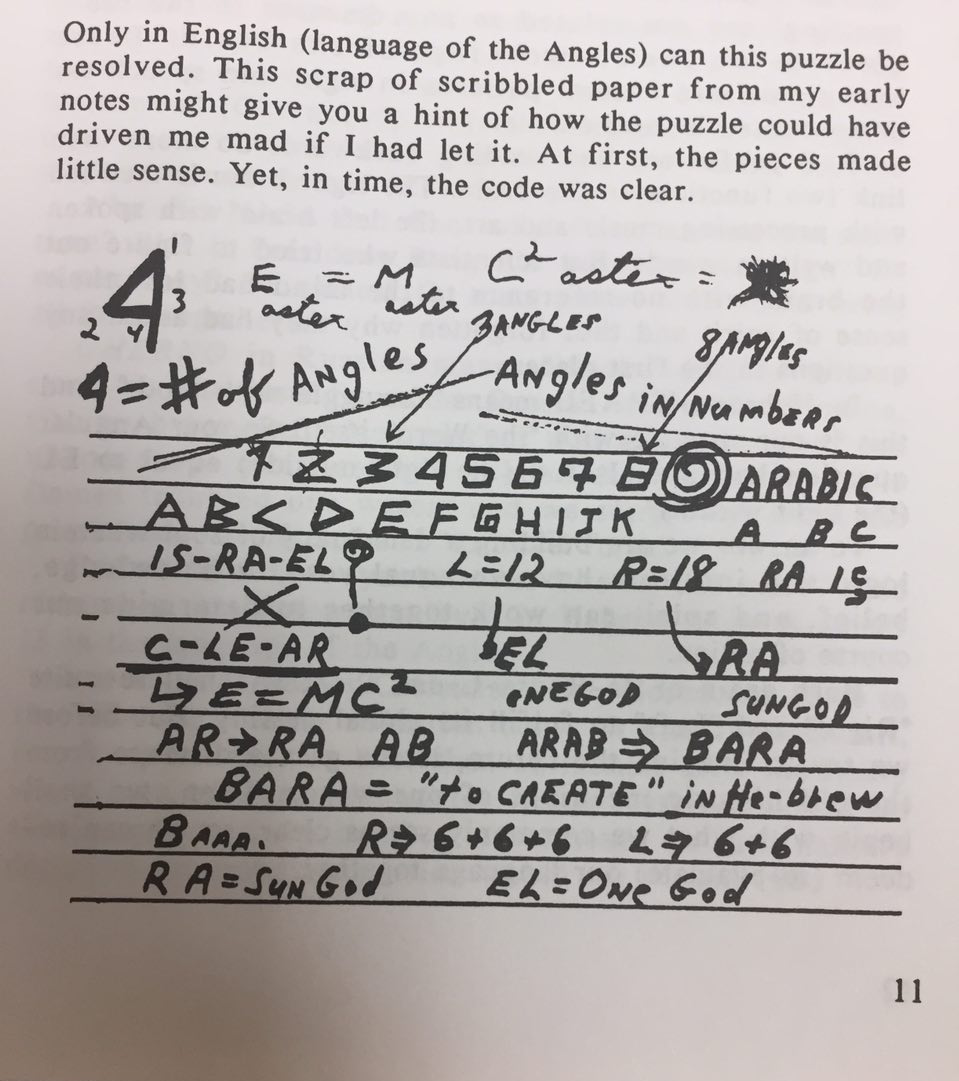 Only in English (language of the Angles) can this puzzle be
resolved. This scrap of scribbled paper from my early
notes might give you a hint of how the puzzle could have
driven me mad if I had let it. At first, the pieces made
little sense. Yet, in time, the code was clear.
4 1 2 3 4
E aster = M aster C² aster =
3 ANGLES
8 ANgles
4 = # of ANgles
ANgles iN NumbeRs
1 2 3 4 5 6 7 8 ARABIC
A B C D E F G H I J K A B C
IS-RA-EL L=12 R=18 RA IS
C-LE-AR EL RA
E=MC² ONE GOD SUNGOD
AR→RA AB ARAB ⇒ BARA
BARA = "to CREATE" iN He-brew
BAAA. R⇒6+6+6 L⇒6+6
RA=SUN God EL=ONe God
11